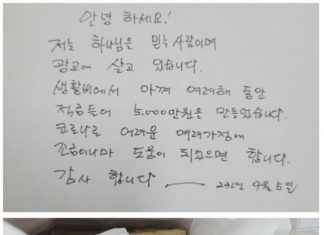 안녕 하세요!
저는 하나님은 믿는 사람이며
광교에 살고 있습니다.
생활비에서 아껴 여러해 동안
적금들어 5,000만원은 만들었습니다.
코로나로 어려운 여러가정에
조금이나마 도움이 되었으면 합니다.
감사 합니다 —— 9월 5일